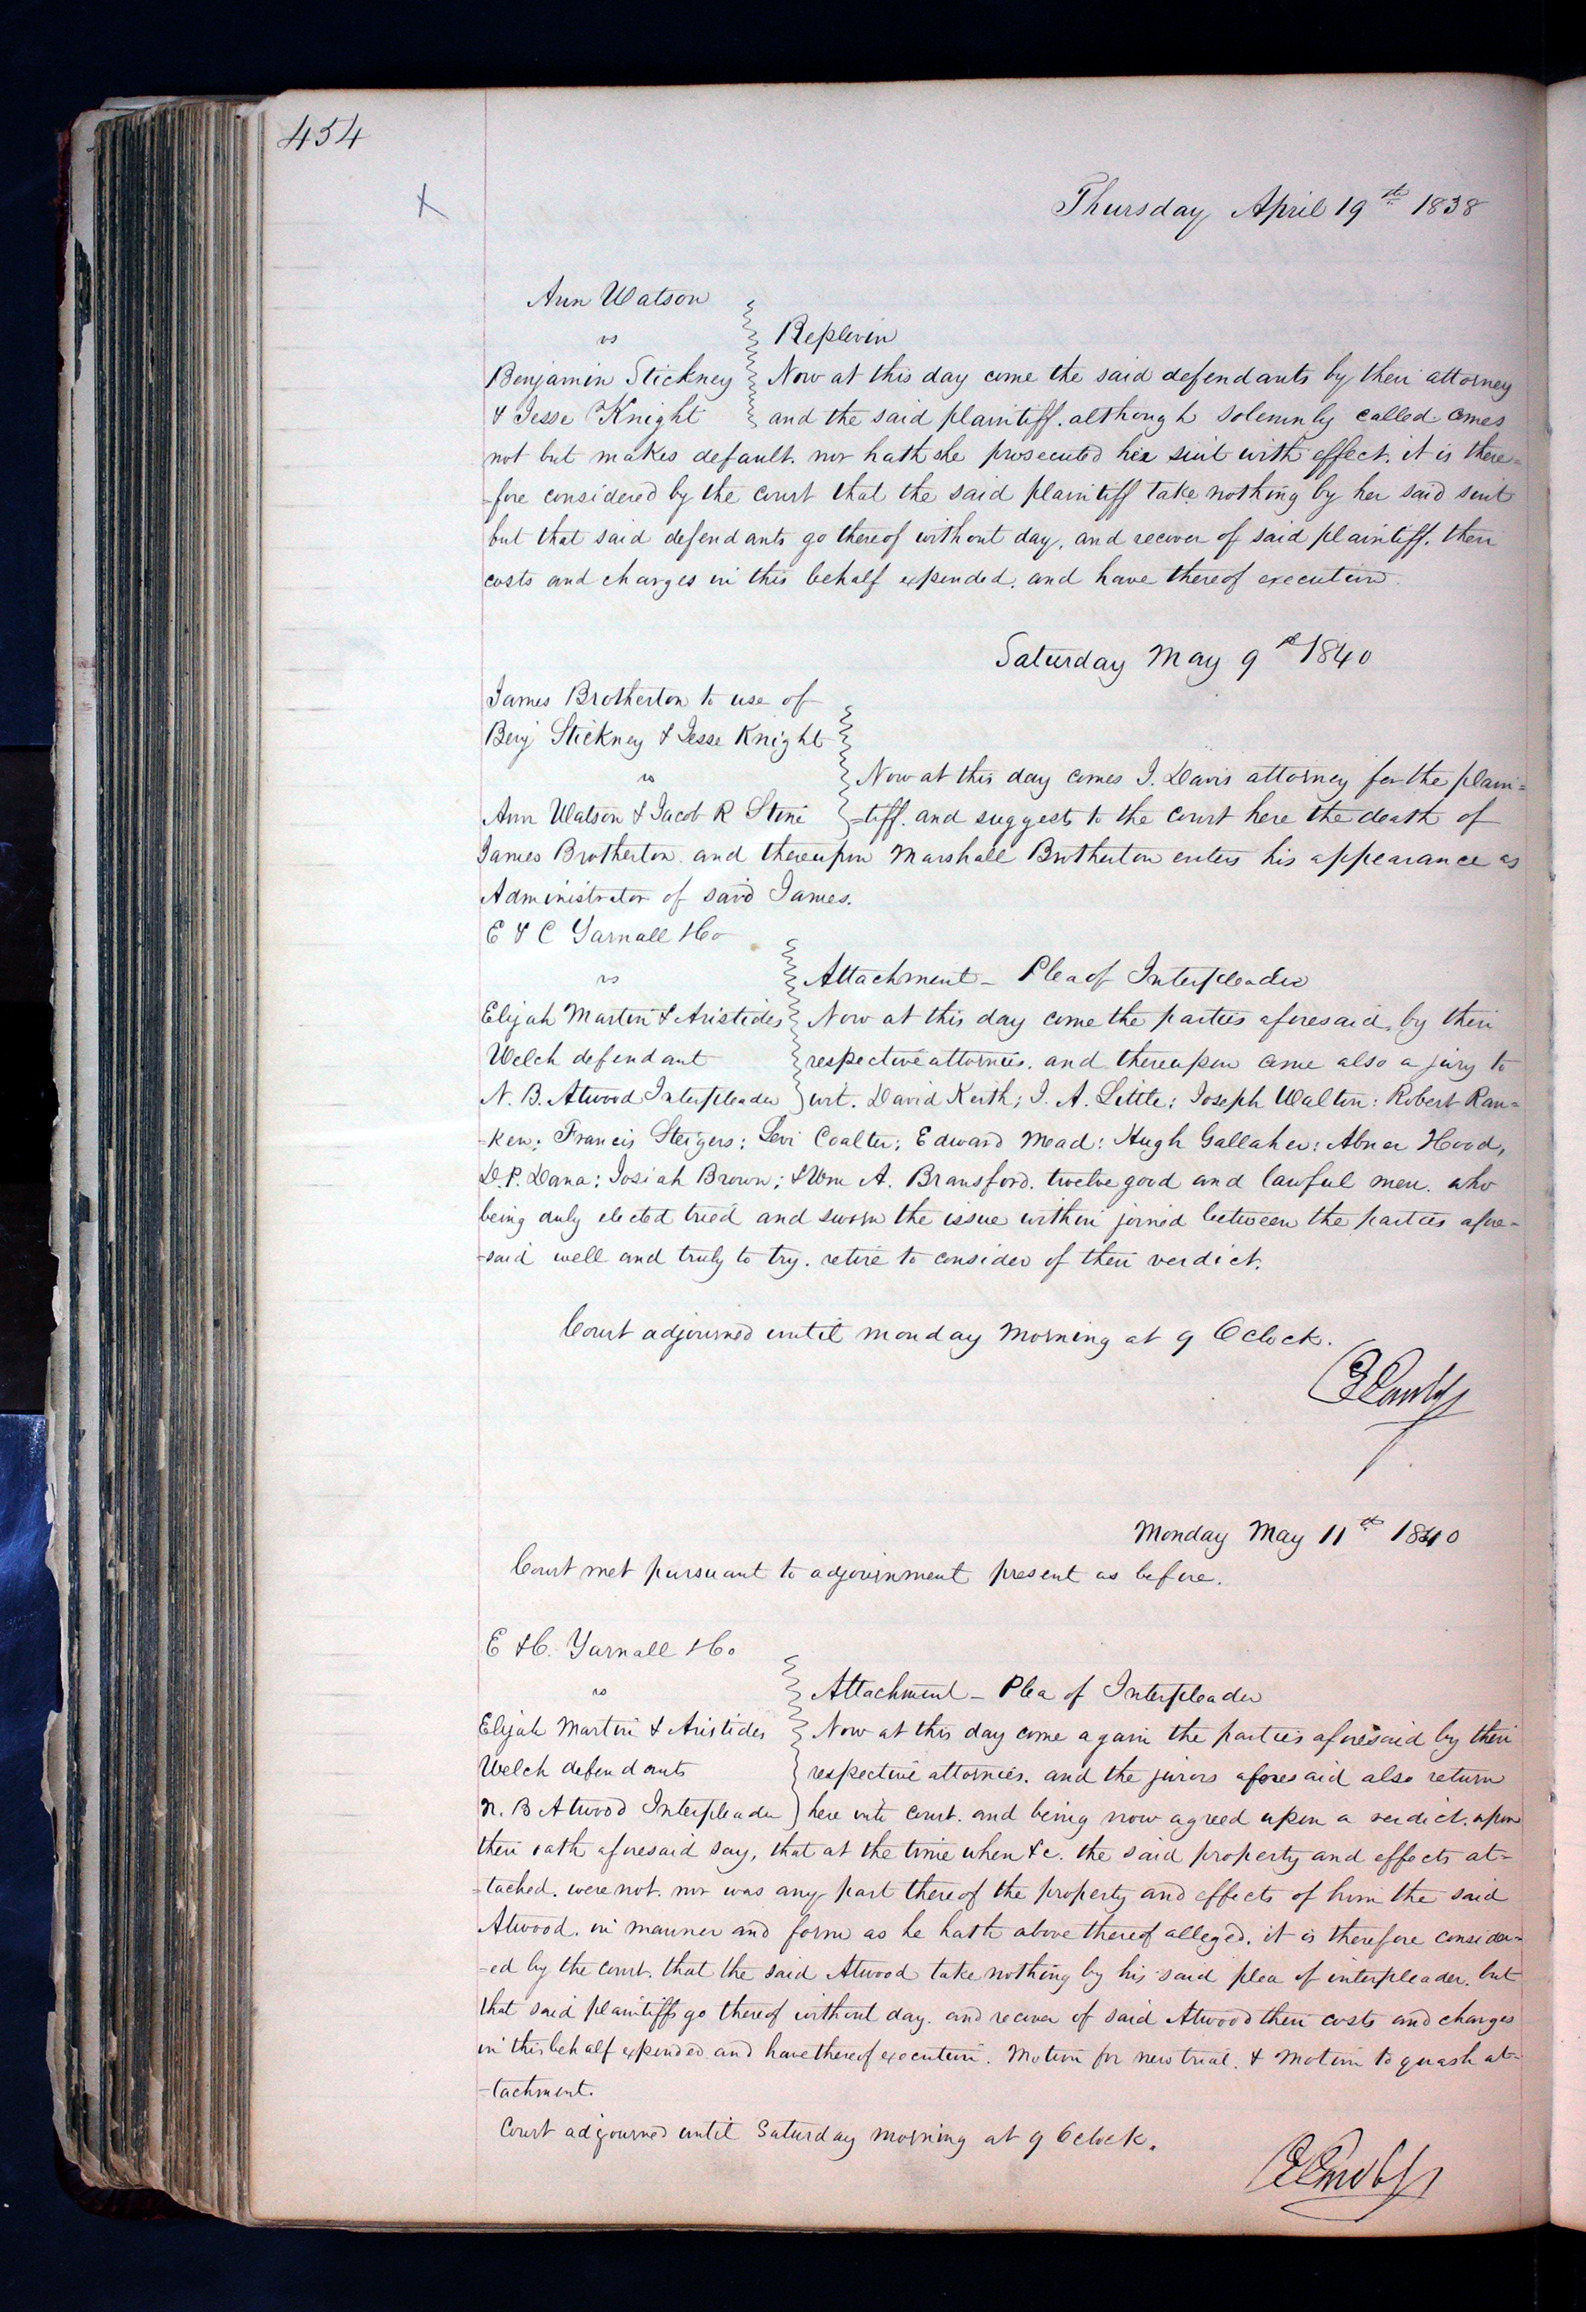 454
X
Thursday April 19th 1838
Ann Watson
vs
Replevin
Benjamin Stickney Now at this day come the said defendants by their attorney
& Jesse Knight and the said plaintiff. although solemnly called comes
not but makes default. nor hath she prosecuted her suit with effect. it is there=
=fore considered by the court that the said plaintiff take nothing by her said suit
but that said defendants go thereof without day, and recover of said plaintiff. their
costs and charges in this behalf expended. and have thereof execution.
Saturday May 9th 1840
James Brotherton to use of
Benj Stickney & Jesse Knight
vs Now at this day comes J. Davis attorney for the plain=
Ann Watson & Jacob R Stine =tiff. and suggests to the court here the death of
James Brotherton. and thereupon Marshall Brotherton enters his appearance as
Administrator of said James.
E & C Yarnall & Co
vs Attachment - Plea of Interpleader
Elijah Martin & Aristides Now at this day come the parties aforesaid, by their
Welch defendant respective attornies. and thereupon came also a jury to
N. B. Atwood Interpleader wit. David Keith; J. A. Little: Joseph Walton: Robert Ran=
=ken; Francis Steigers: Levi Coalter; Edward Mead: Hugh Gallaher: Abner Hood,
D. P. Dana: Josiah Brown; & Wm A. Bransford. twelve good and lawful men. who
being duly elected tried and sworn the issue within joined between the parties afore=
=said well and truly to try. retire to consider of their verdict.
Court adjourned until monday morning at 9 Oclock.
Monday May 11th 1840
Court met pursuant to adjournment present as before.
E & C. Yarnall & Co
vs Attachment - Plea of Interpleader
Elijah Martin & Aristides Now at this day come again the parties aforesaid by their
Welch defendants respective attornies. and the jurors aforesaid also return
N. B Atwood Interpleader here into court. and being now agreed upon a verdict. upon
their oath aforesaid say, that at the time when &c. the said property and effects at=
=tached. were not. nor was any part thereof the property and effects of him the said
Atwood. in manner and form as he hath above thereof alleged. it is therefore consider=
=ed by the court. that the said Atwood take nothing by his said plea of interpleader. but
that said plaintiffs go thereof without day. and recover of said Atwood their costs and charges
in this behalf expended. and have thereof execution. Motion for new trial. & motion to quash at=
=tachment.
Court adjourned until Saturday morning at 9 Oclock.